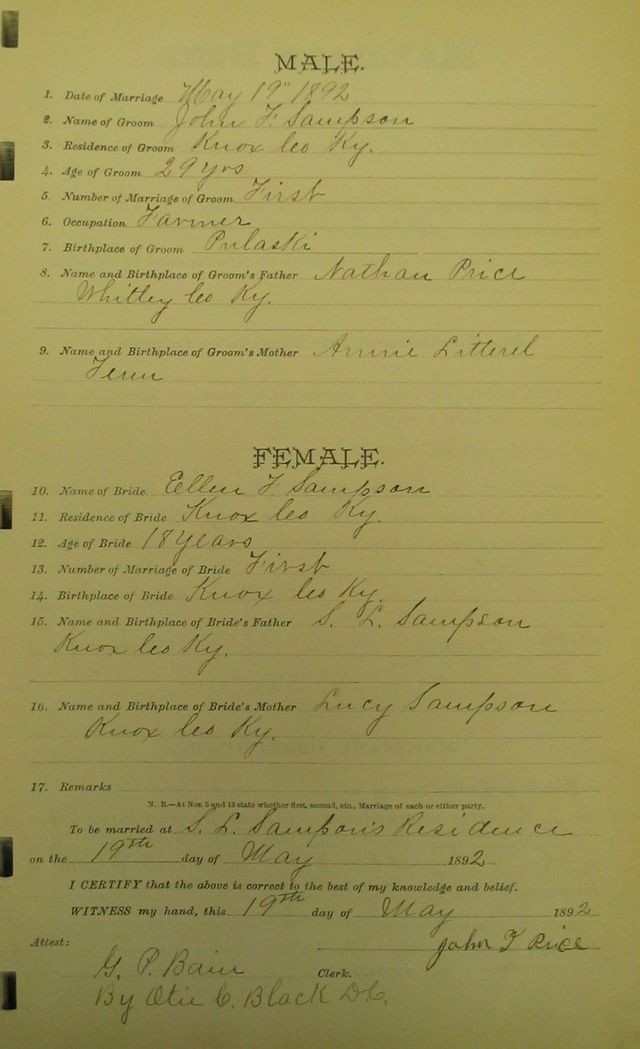 MALE.
1. Date of Marriage May 19" 1892
2. Name of Groom John F. Sampson
3. Residence of Groom Knox Co Ky.
4. Age of Groom 29 yrs
5. Number of Marriage of Groom First
6. Occupation Farmer
7. Birthplace of Groom Pulaski
8. Name and Birthplace of Groom's Father Nathan Price
Whitley Co Ky.
9. Name and Birthplace of Groom's Mother Annie Litterel
Tenn
FEMALE.
10. Name of Bride Ellen F. Sampson
11. Residence of Bride Knox Co Ky.
12. Age of Bride 18 Years
13. Number of Marriage of Bride First
14. Birthplace of Bride Knox Co Ky.
15. Name and Birthplace of Bride's Father S. L. Sampson
Knox Co Ky.
16. Name and Birthplace of Bride's Mother Lucy Sampson
Knox Co Ky.
17. Remarks
N. B.—At Nos. 5 and 13 state whether first, second, etc., Marriage of each or either party.
To be married at S. L. Sampson's Residence
on the 19th day of May 1892
I CERTIFY that the above is correct to the best of my knowledge and belief.
WITNESS my hand, this 19th day of May 1892
John F Price
Attest:
G. P. Bain Clerk.
By Otie C. Black D.C.